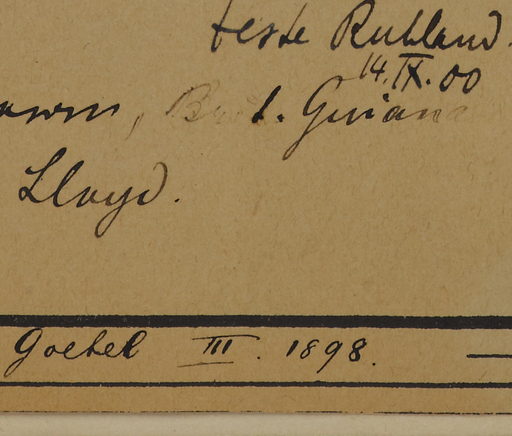 teste Ruhland.
14. IX. 00
Brit. Guiana
Lloyd.
Goebel III. 1898.